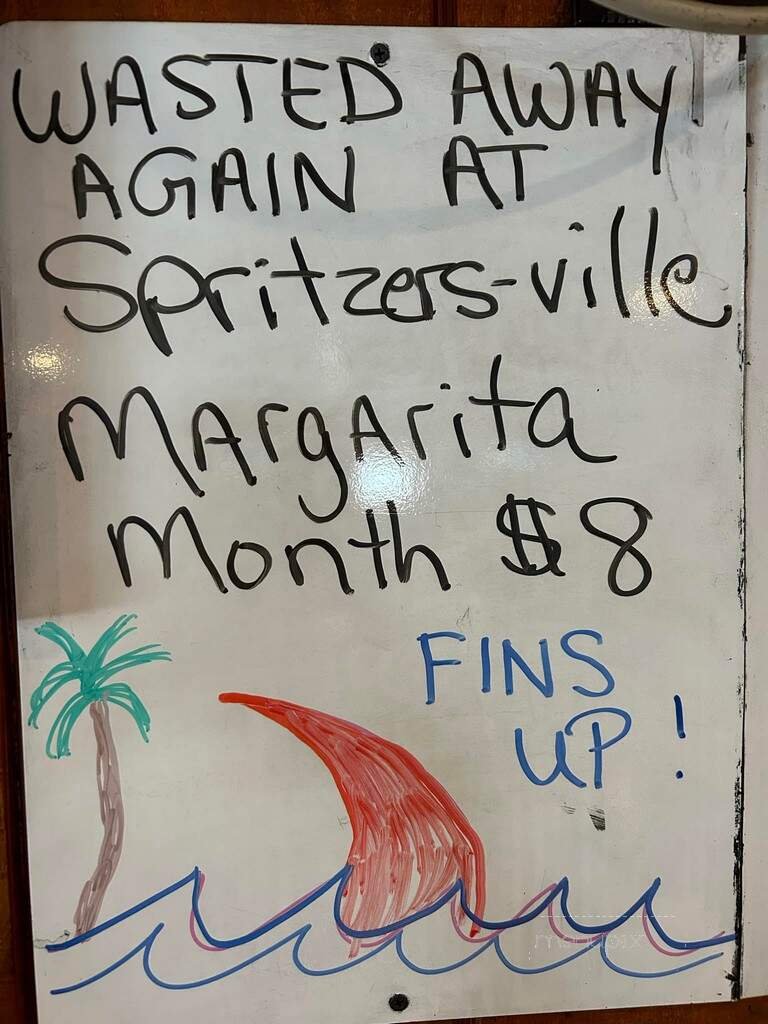 WASTED AWAY
AGAIN AT
Spritzers-ville
MArgArita
Month $8
FINS
UP!
menupix